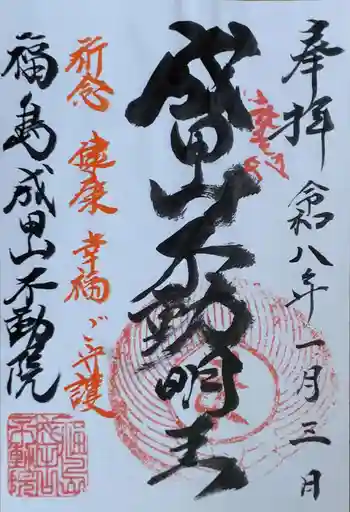 奉拝 令和八年一月三日
成田山不動明王
祈念 健康 幸福ご守護
福島成田山不動院